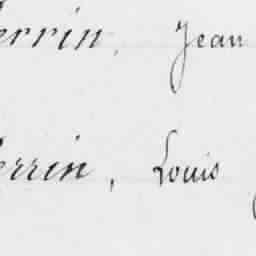 errin, Jean
errin, Louis